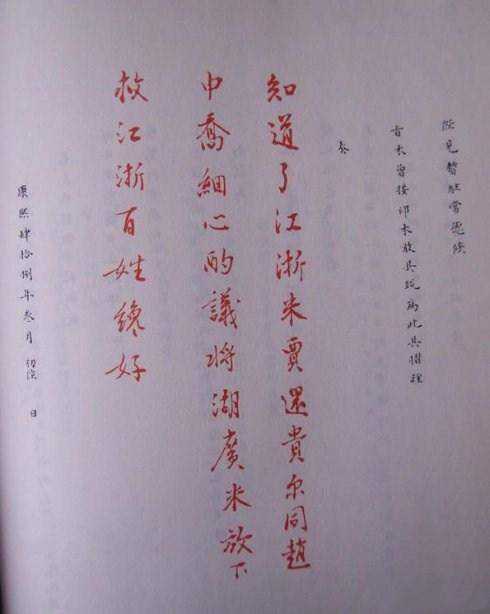 陛見暫駐常德候
旨未曾接印未敢具疏為此具摺謹
奏
知道了江浙米賈還貴尔同趙
申喬細心酌議將湖廣米放下
救江浙百姓纔好
康熙肆拾捌年叁月初 日